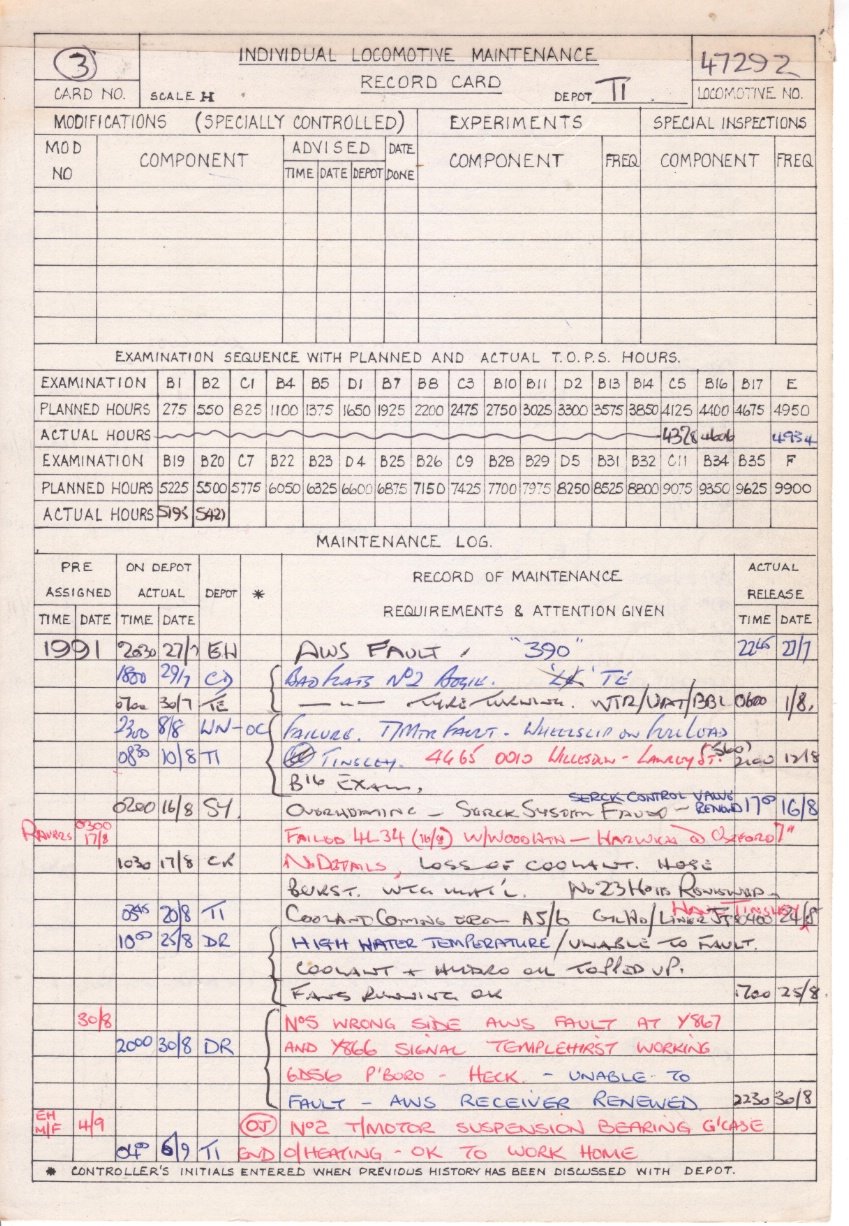 3 INDIVIDUAL LOCOMOTIVE MAINTENANCE 47292
CARD NO. SCALE H RECORD CARD DEPOT TI LOCOMOTIVE NO.
MODIFICATIONS (SPECIALLY CONTROLLED) EXPERIMENTS SPECIAL INSPECTIONS
MOD NO COMPONENT ADVISED DATE DONE COMPONENT FREQ COMPONENT FREQ
TIME DATE DEPOT
EXAMINATION SEQUENCE WITH PLANNED AND ACTUAL T.O.P.S. HOURS.
EXAMINATION B1 B2 C1 B4 B5 D1 B7 B8 C3 B10 B11 D2 B13 B14 C5 B16 B17 E
PLANNED HOURS 275 550 825 1100 1375 1650 1925 2200 2475 2750 3025 3300 3575 3850 4125 4400 4675 4950
ACTUAL HOURS 4328 4606 4934
EXAMINATION B19 B20 C7 B22 B23 D4 B25 B26 C9 B28 B29 D5 B31 B32 C11 B34 B35 F
PLANNED HOURS 5225 5500 5775 6050 6325 6600 6875 7150 7425 7700 7975 8250 8525 8800 9075 9350 9625 9900
ACTUAL HOURS 5195 5421
MAINTENANCE LOG.
PRE ASSIGNED ON DEPOT ACTUAL DEPOT * RECORD OF MAINTENANCE REQUIREMENTS & ATTENTION GIVEN ACTUAL RELEASE
TIME DATE TIME DATE TIME DATE
1991 2030 27/7 EH AWS FAULT. "390" 2245 27/7
1800 29/7 CD BAD FLATS No2 BOGIE. TE
0700 30/7 TE TYRE TURNING. WTR/UAT/BBL 0600 1/8.
2300 8/8 WN-OC FAILURE. T/MTR FAULT - WHEELSLIP ON FULL LOAD
0830 10/8 TI TINSLEY. 4G65 0010 WILLESDEN - LAWLEY ST. (560) 2100 12/8
B16 EXAM.
0200 16/8 SY. OVERHEATING - SERCK SYSTEM FAULT - SERCK CONTROL VALVE RENEWD 1700 16/8
0300 17/8 FAILED 4L34 (16/8) W/WOODLTN - HARWICH @ OXFORD
1030 17/8 CR NO DETAILS, LOSS OF COOLANT. HOSE
BURST. WTG MAT'L. No 23 HOSE RENEWED
0545 20/8 TI COOLANT COMING FROM A5/6 CYL HD/LINER JT 0400 24/8
1000 25/8 DR HIGH WATER TEMPERATURE/UNABLE TO FAULT.
COOLANT + HYDRO OIL TOPPED UP.
FANS RUNNING OK 1700 25/8.
30/8 No5 WRONG SIDE AWS FAULT AT Y867
2000 30/8 DR AND Y866 SIGNAL TEMPLEHIRST WORKING
6D56 P'BORO - HECK. - UNABLE TO
FAULT - AWS RECEIVER RENEWED 2230 30/8
EH M/F 4/9 OJ No2 T/MOTOR SUSPENSION BEARING G'CASE
0400 6/9 TI END O/HEATING - OK TO WORK HOME
* CONTROLLER'S INITIALS ENTERED WHEN PREVIOUS HISTORY HAS BEEN DISCUSSED WITH DEPOT.